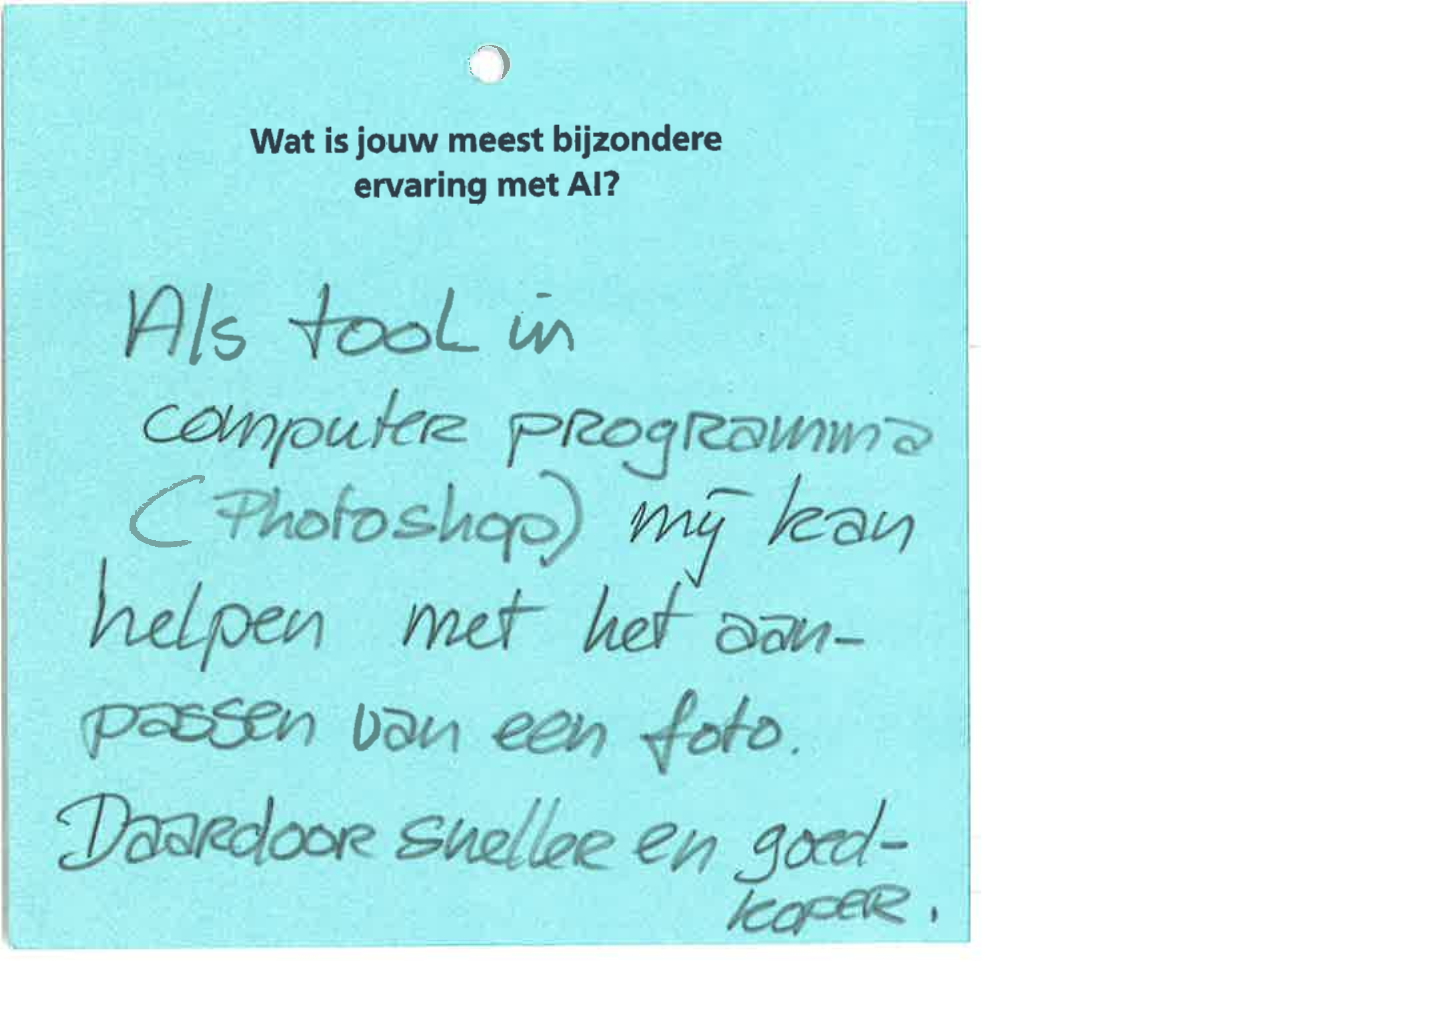 Wat is jouw meest bijzondere
ervaring met AI?
Als tool in
computer programma
(Photoshop) mij kan
helpen met het aan-
passen van een foto.
Daardoor sneller en goed-
koper.